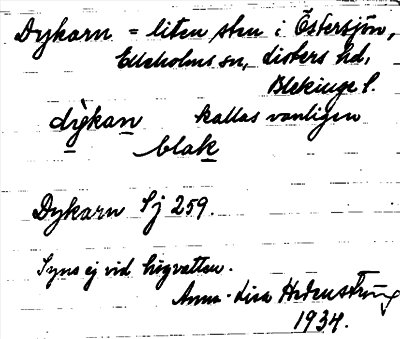 Dykarn = liten sten i Östersjön,
Elleholms sn, Listers hd,
Blekinge l.
dỳkan kallas vanligen
blak
Dykarn Sj 259.
Syns ej vid högvatten.
Anna-Lisa Hedenström
1934.